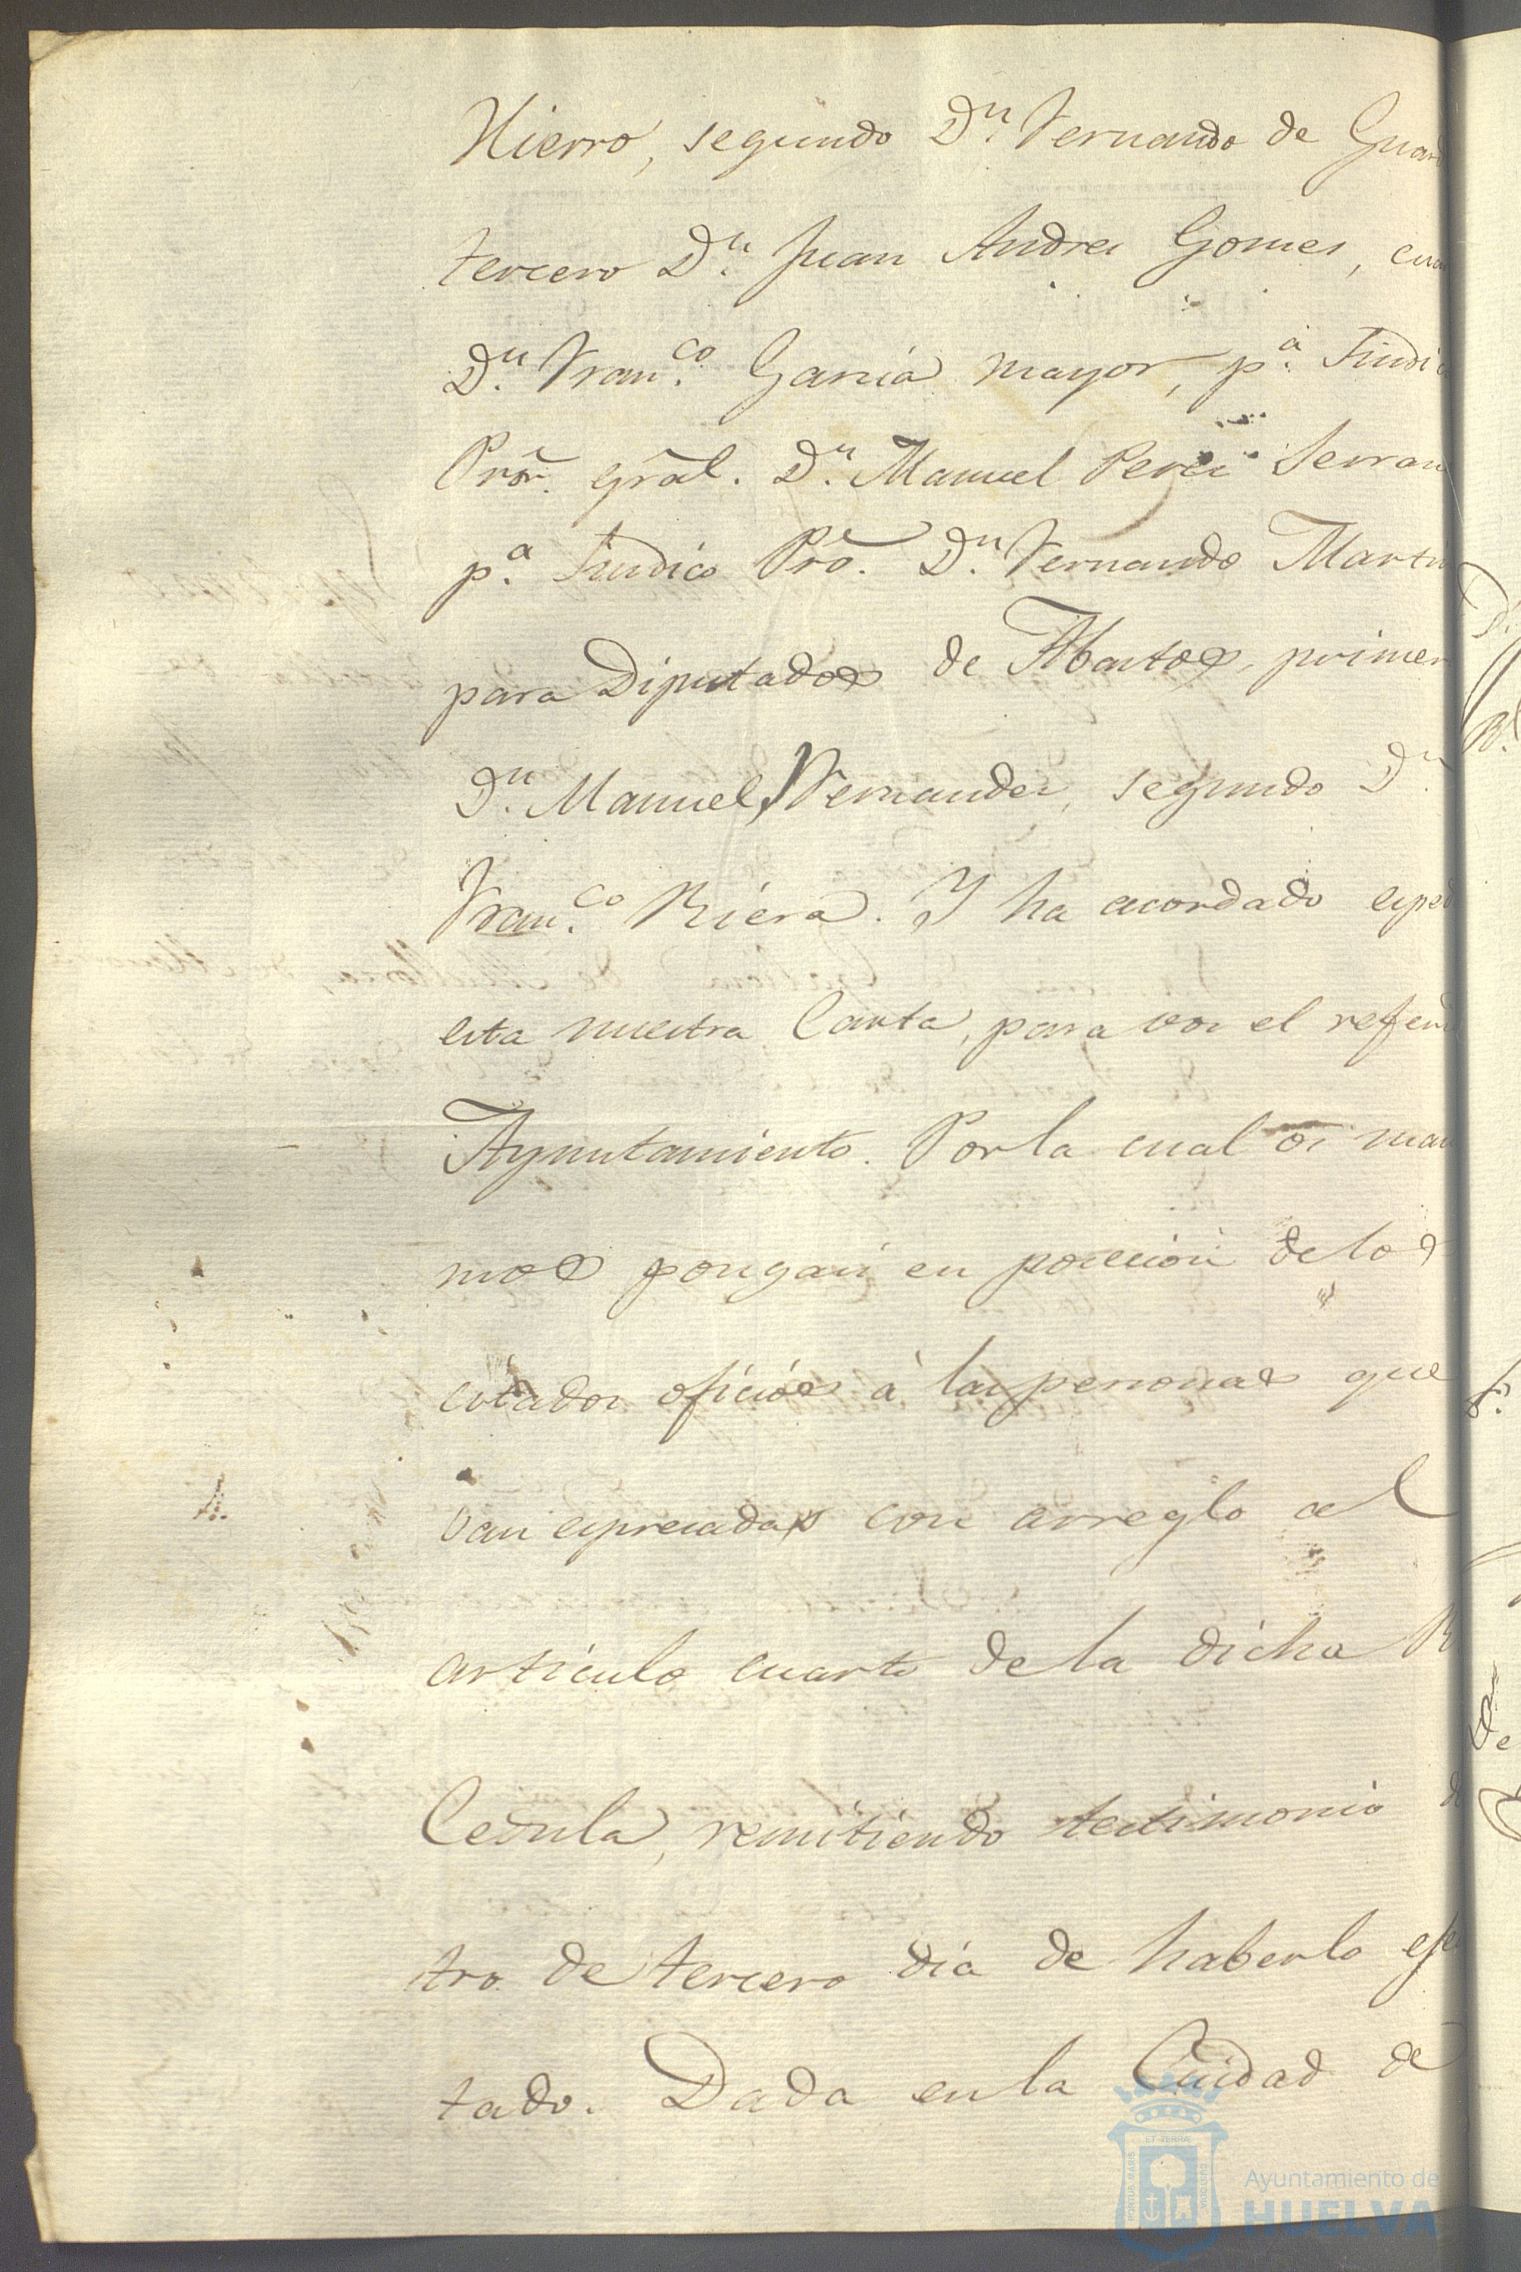 Hierro, segundo D.n Fernando de Guar
tercero D.n Juan Andres Gomes, cua
D.n Fran.co Garcia mayor, p.a Sindi
Pror. gral. D.n Manuel Perez Serran
p.a Sindico Pro. D.n Fernando Marti
para Diputados de Abastos, primer
D.n Manuel Fernandez, segundo D.n
Fran.co Riera. Y ha acordado exped
esta nuestra Carta, para vos el referi
Ayuntamiento. Por la cual os man
mos pongais en posecion de los
citados oficios à las personas que
van expresadas con arreglo al
articulo cuarto de la dicha R
Cedula, remitiendo testimonio d
tro de tercero dia de haberlo efe
tado. Dada en la Ciudad de
Ayuntamiento de
HUELVA